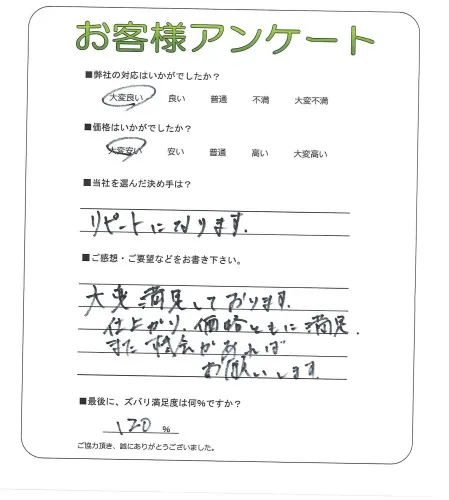 お客様アンケート
■弊社の対応はいかがでしたか？
大変良い 良い 普通 不満 大変不満
■価格はいかがでしたか？
大変安い 安い 普通 高い 大変高い
■当社を選んだ決め手は？
リピートになります。
■ご感想・ご要望などをお書き下さい。
大変満足しております。
仕上がり、価格ともに満足。
また機会があれば
お願いします。
■最後に、ズバリ満足度は何%ですか？
120 %
ご協力頂き、誠にありがとうございました。